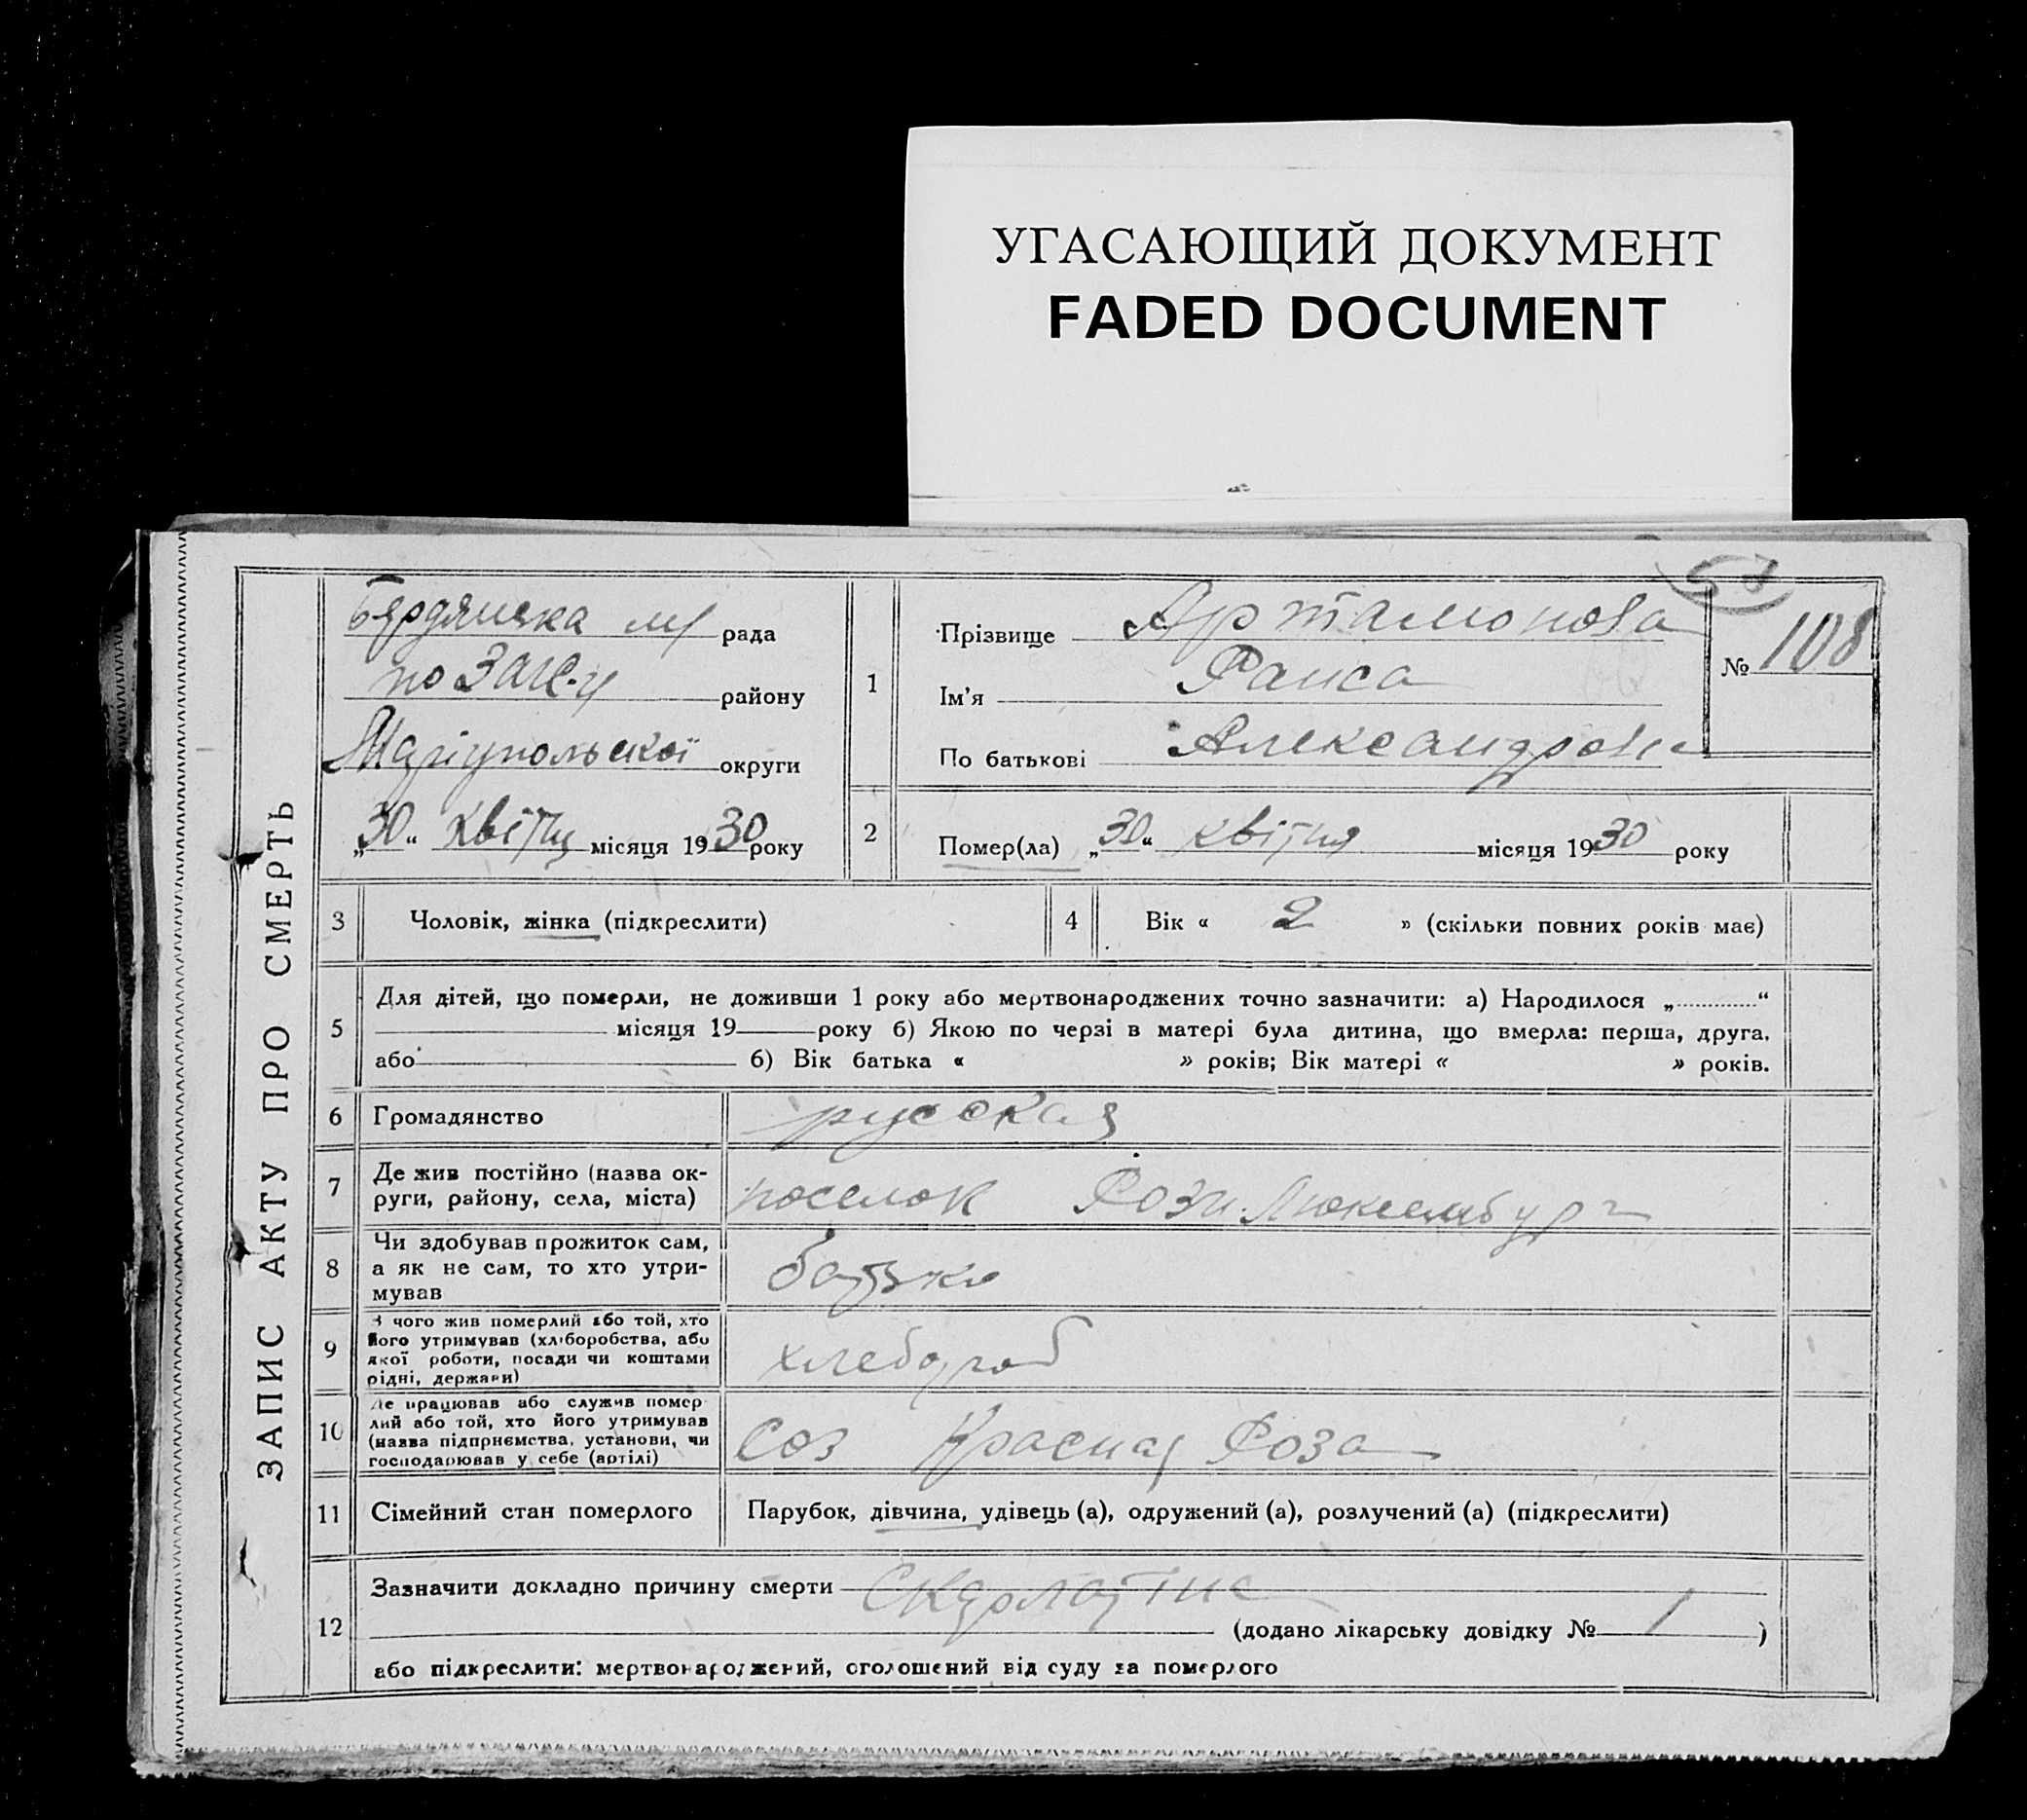 УГАСАЮЩИЙ ДОКУМЕНТ
FADED DOCUMENT
ЗАПИС АКТУ ПРО СМЕРТЬ
Бердянська м/ рада
по ЗАГС-у району
Маріупольської округи
„30“ квітня місяця 1930 року
1
Прізвище Артамонова
Ім’я Раиса
По батькові Александровна
№ 108
2
Помер(ла) „30“ квітня місяця 1930 року
3 Чоловік, жінка (підкреслити)
4 Вік « 2 » (скільки повних років має)
5 Для дітей, що померли, не доживши 1 року або мертвонароджених точно зазначити: а) Народилося „ “
місяця 19 року б) Якою по черзі в матері була дитина, що вмерла: перша, друга,
або б) Вік батька « » років; Вік матері « » років.
6 Громадянство русская
7 Де жив постійно (назва ок-
руги, району, села, міста) поселок Рози Люксембург
8 Чи здобував прожиток сам,
а як не сам, то хто утри-
мував батько
9 З чого жив померлий або той, хто
його утримував (хліборобства, або
якої роботи, посади чи коштами
рідні, держави) хлебороб
10 Де працював або служив помер-
лий або той, хто його утримував
(назва підприємства, установи, чи
господарював у себе (артілі) Соз Красная Роза
11 Сімейний стан померлого Парубок, дівчина, удівець (а), одружений (а), розлучений (а) (підкреслити)
12 Зазначити докладно причину смерти Скарлатина
(додано лікарську довідку № 1 )
або підкреслити: мертвонароджений, оголошений від суду за померлого